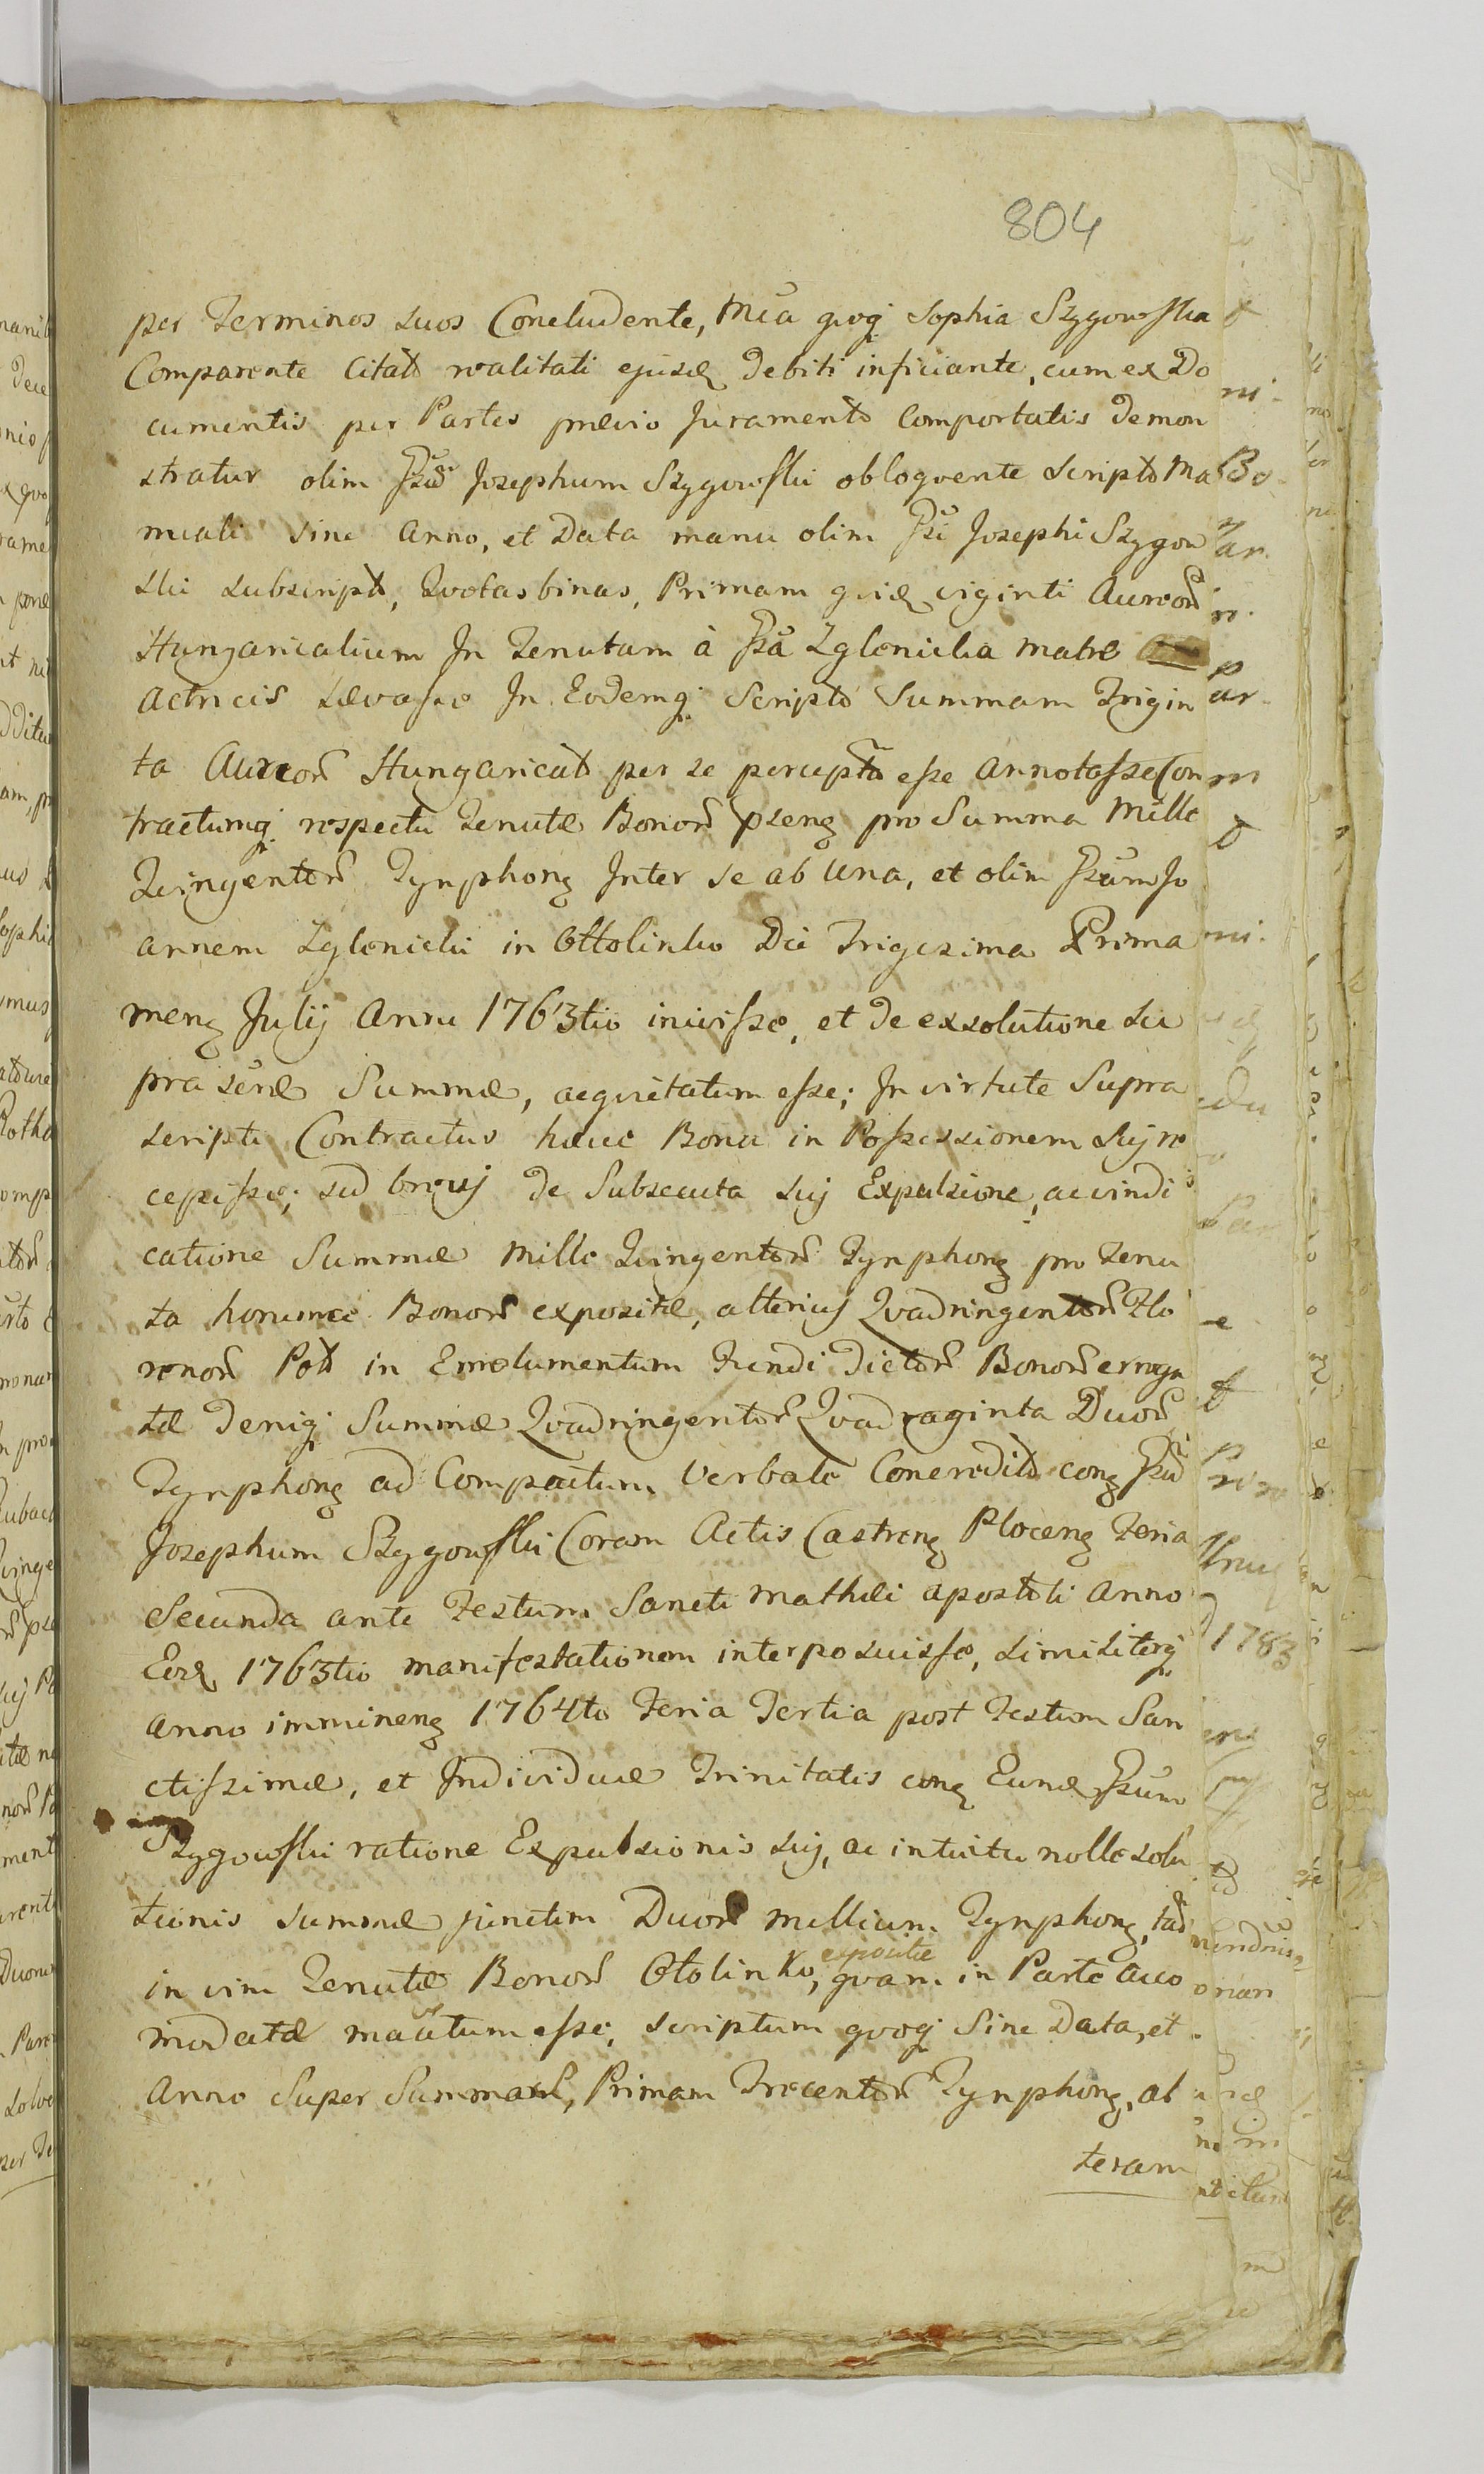 804
per Terminos suos Concludente, Mĩa qvoq Sophia Szygowska
Comparente Citato realitati ejusd debiti inficiante, cum ex Do
cumentis per Partes prævio Juramento Comportatis demon
stratur olim Josephum Szygowski obloqvente Scripto Ma
nuali sine Anno, et Data manu olim Josephi Szygow
ski subscripto, Qvotas binas, Primam qvid viginti Aureor
Hungaricalium In Tenutam à Zglenicka Matre
Actricis Levasse In Eodemq Scripto Summam Trigin
ta Aureor Hungarical per se percepta esse Annotasse Con
tractumq respectu Tenutæ Bonor psens pro Summa Mille
Qvingentor Tynphons Inter se ab Una, et olim Jo
annem Zglenicki in Ottolinko Die Trigesima Prima
mens Julij Anni 1763tio inivisse, et de exsolutione su
pra Summæ, acqvietatum esse; In virtute Supra
scripti Contractus hæcce Bona in Possessionem suj re
cepisse; sed brevj de Subsecuta suj Expulsione, ac vindi
catione Summæ Mille Qvingentor Tynphons pro Tenu
ta horumce Bonor expositæ, alterius Qvadringentor Flo
renor Pol in Emolumentum Fundi dictor Bonor erroga
tæ deniq Summæ Qvadringentor Qvadraginta Duor
Tynphons ad Compactum Verbale Concredito cons
Josephum Szygowski Coram Actis Castrens Plocens Feria
Secunda ante Festum Sancti Mathæi Apostoli Anno
Eod 1763tio manifestationem interposuisse, similiterq
Anno imminens 1764to Feria Tertia post Festum San
ctissimæ, et Individuæ Trinitatis cons Eund
Szygowski ratione Expulsionis suj, ac intuitu nolle solu
tionis summæ junctim Duor millium Tynphons,
in vim Tenutæ Bonor Otolinko, expositæ qvam in Parte acco
modatæ esse; scriptum qvoq Sine Data, et
Anno Super Summam, Primam Trecentor Tynphons, al
teram